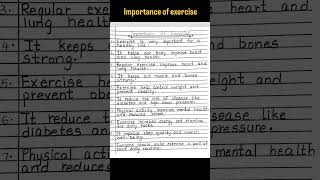 Importance of exercise
3. Regular exer
heart and
lung health
4. It keeps
bones
strong.
5. Exercise he
weight and
prevent obes
6. It reduce t
disease like
diabetes an
ssure.
7. Physical act
mental health
and reduc
Importance Of Exercise
Exercise is very important for a
healthy life.
It helps our body improve heart
and lung health.
Regular exercise improve heart and
lung health.
It keeps our muscle and bones
strong.
Exercise help control weight and
prevent obesity.
It reduce the risk of disease like
diabetes and high blood pressure.
Physical activity improves mental health
and reduces stress.
Exercise increase energy and stamina
for daily tasks.
It improve sleep quality and overall
well-being.
Everyone should make exercise a part of
their daily routine.